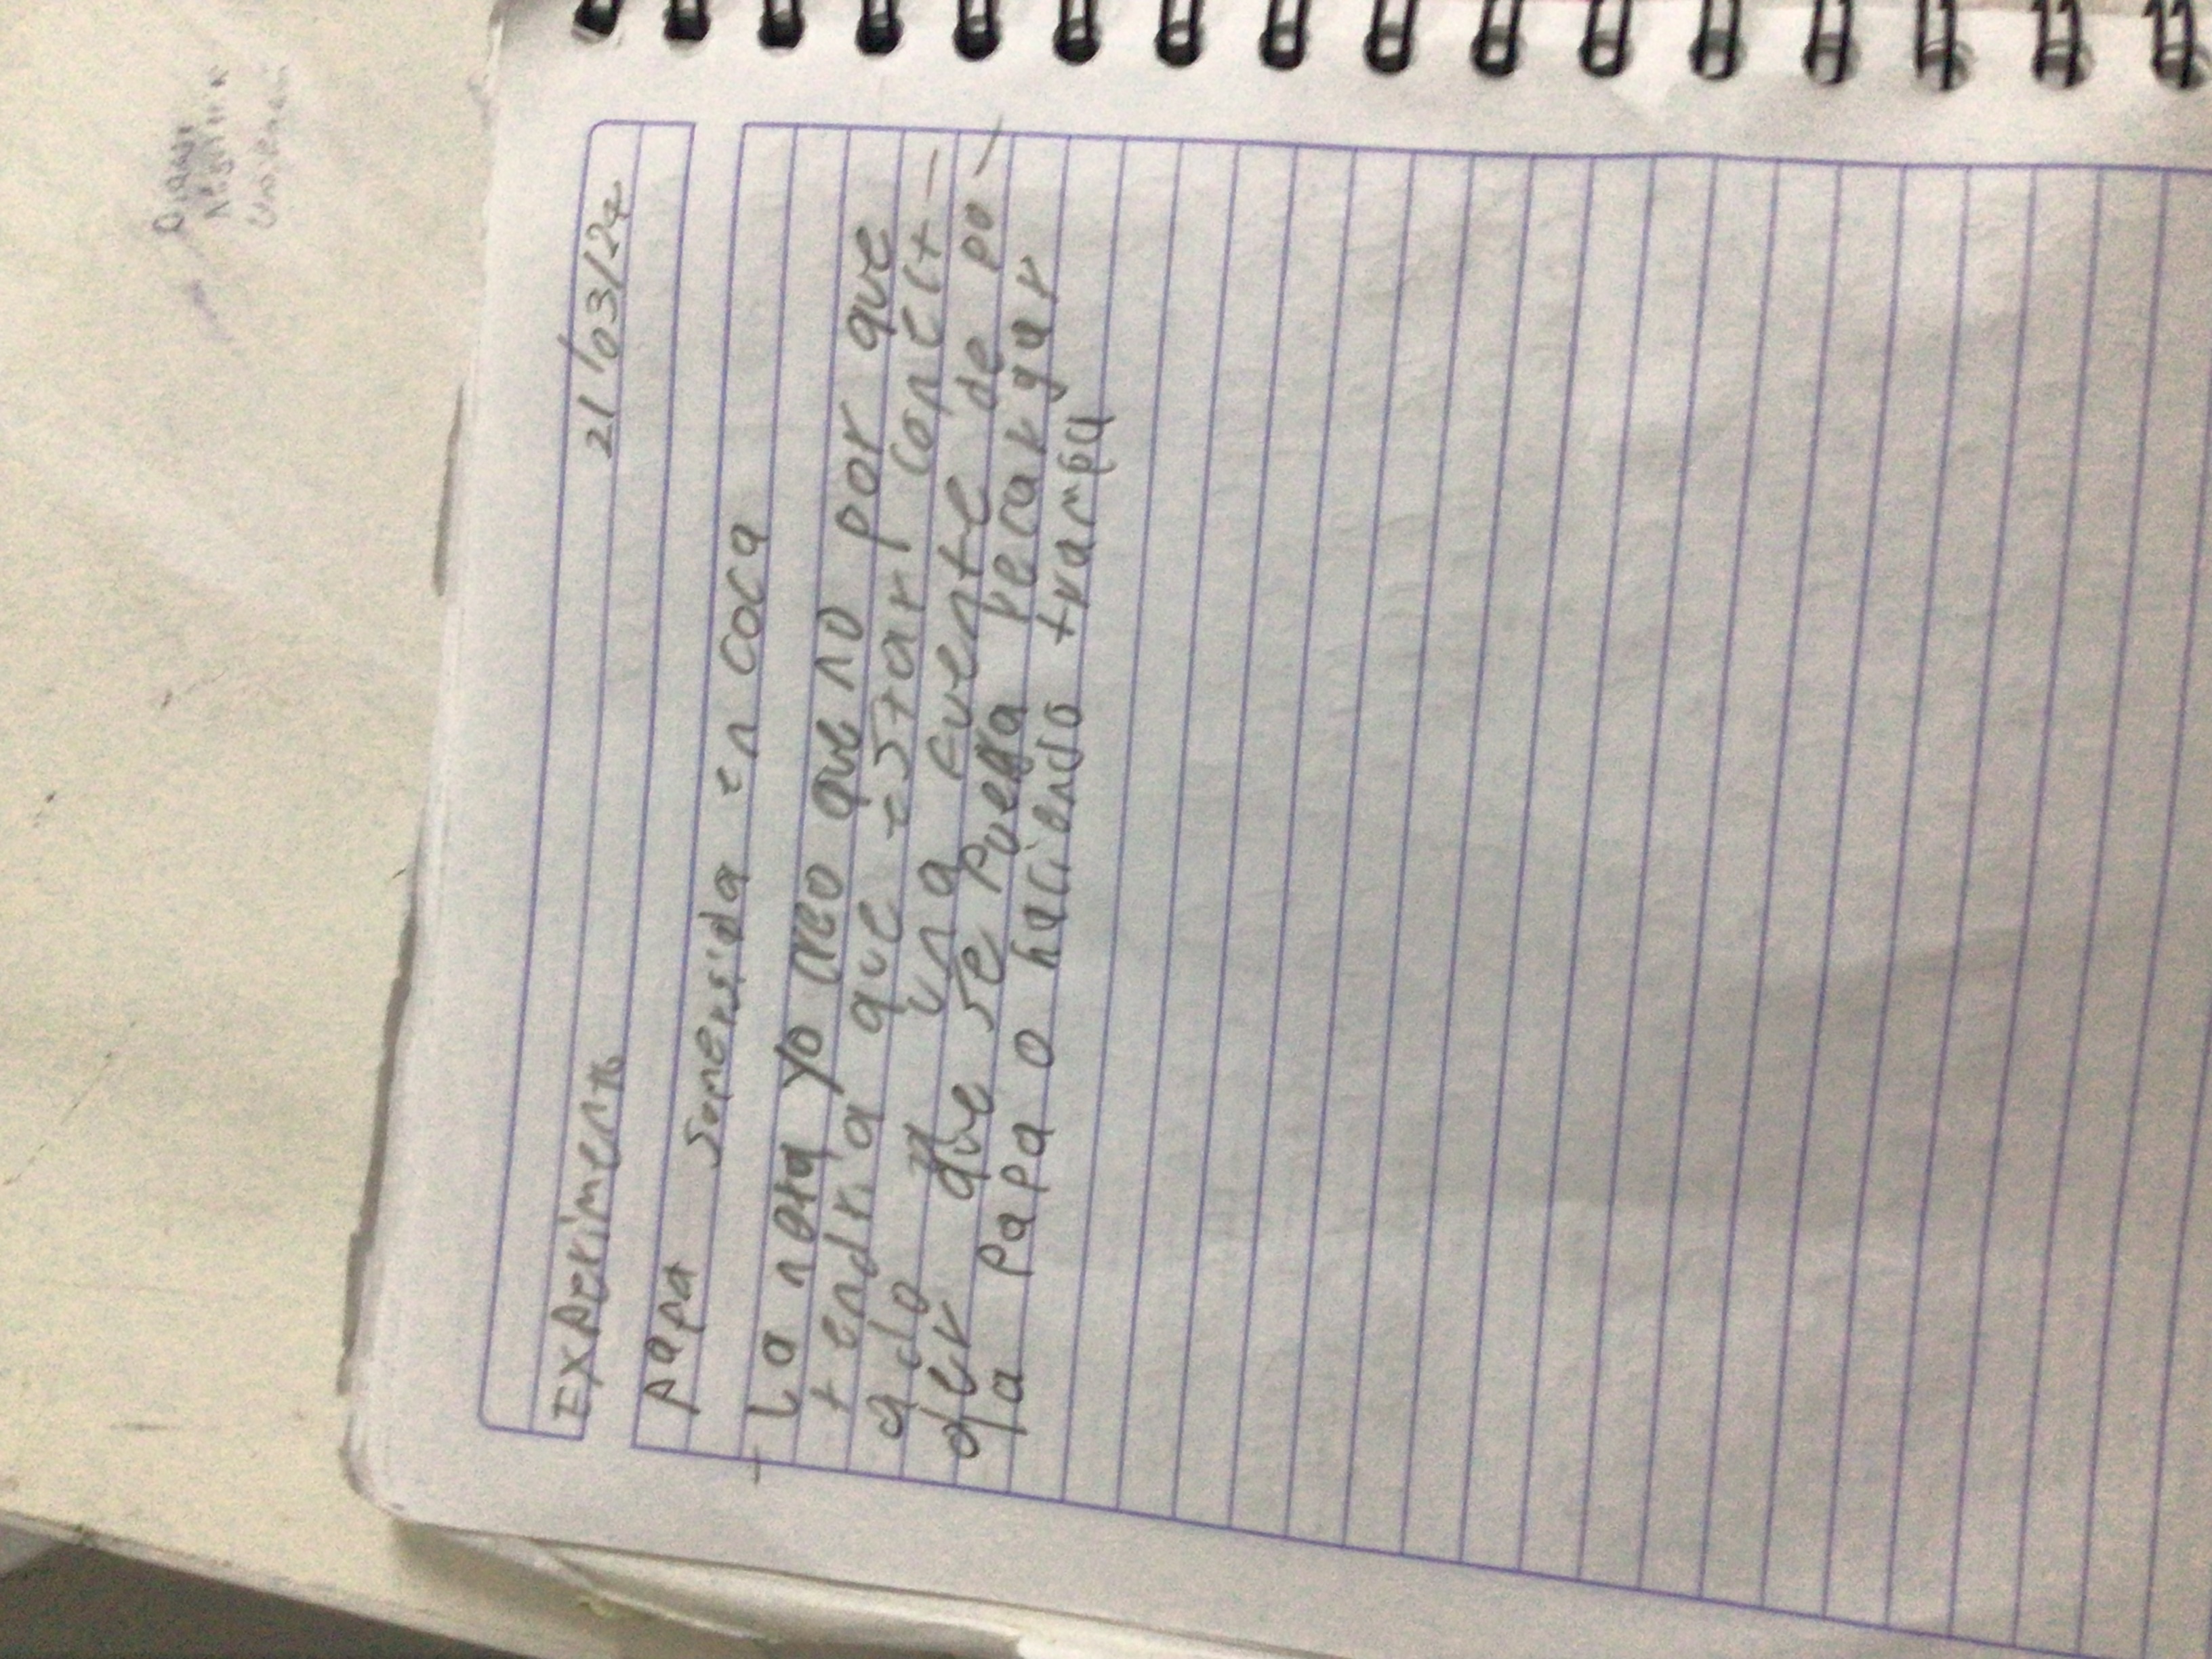 Experimento 21/03/24
papa somersida en coca
- La neta yo creo que no por que
tendria que estar conect-
ado a una fuente de po-
der que se pueda recargar
la papa o haciendo trampa